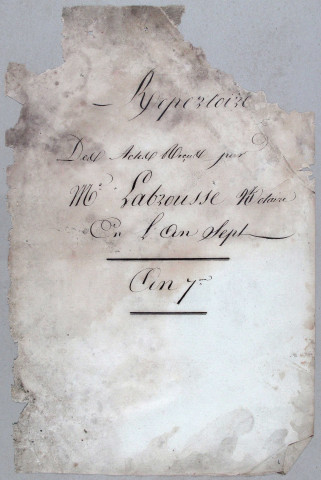 Répertoire
Des Actes Reçus par
Me Labrousse Notaire
En l'an Sept
An 7me